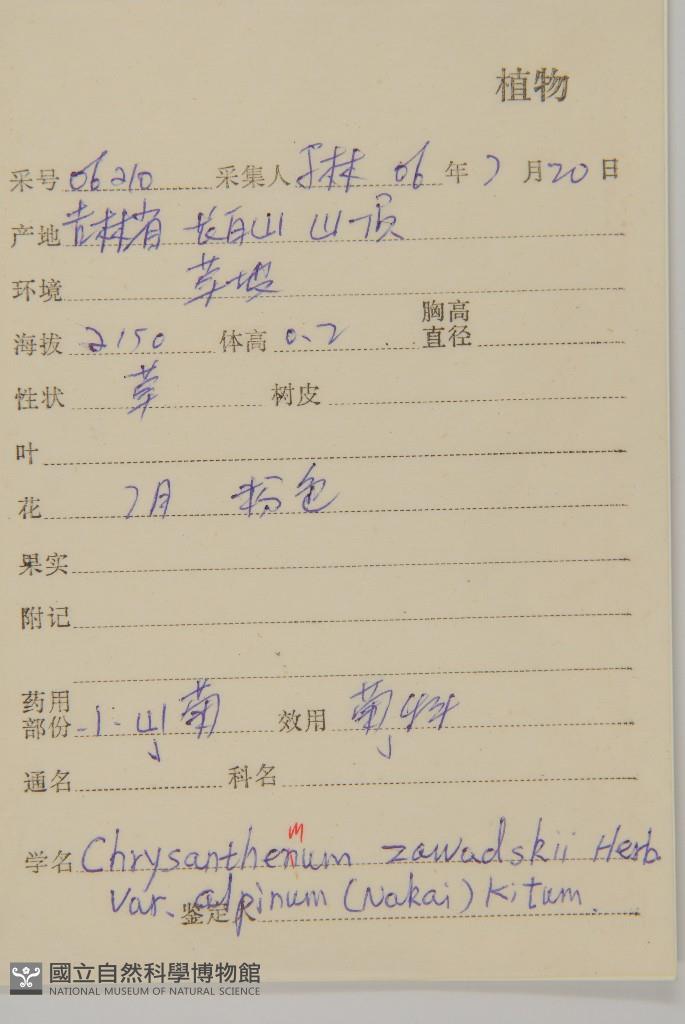 植物
采号 06210 采集人 于林 06 年 7 月 20 日
产地 吉林省 长白山 山顶
环境 草坡
胸高
海拔 2150 体高 0.2 直径
性状 草 树皮
叶
花 7月 粉色
果实
附记
药用
部份 小山菊 效用 菊科
通名 科名
学名 Chrysanthemum zawadskii Herb.
var. alpinum (Nakai) Kitum.
鉴定人
國立自然科學博物館
NATIONAL MUSEUM OF NATURAL SCIENCE